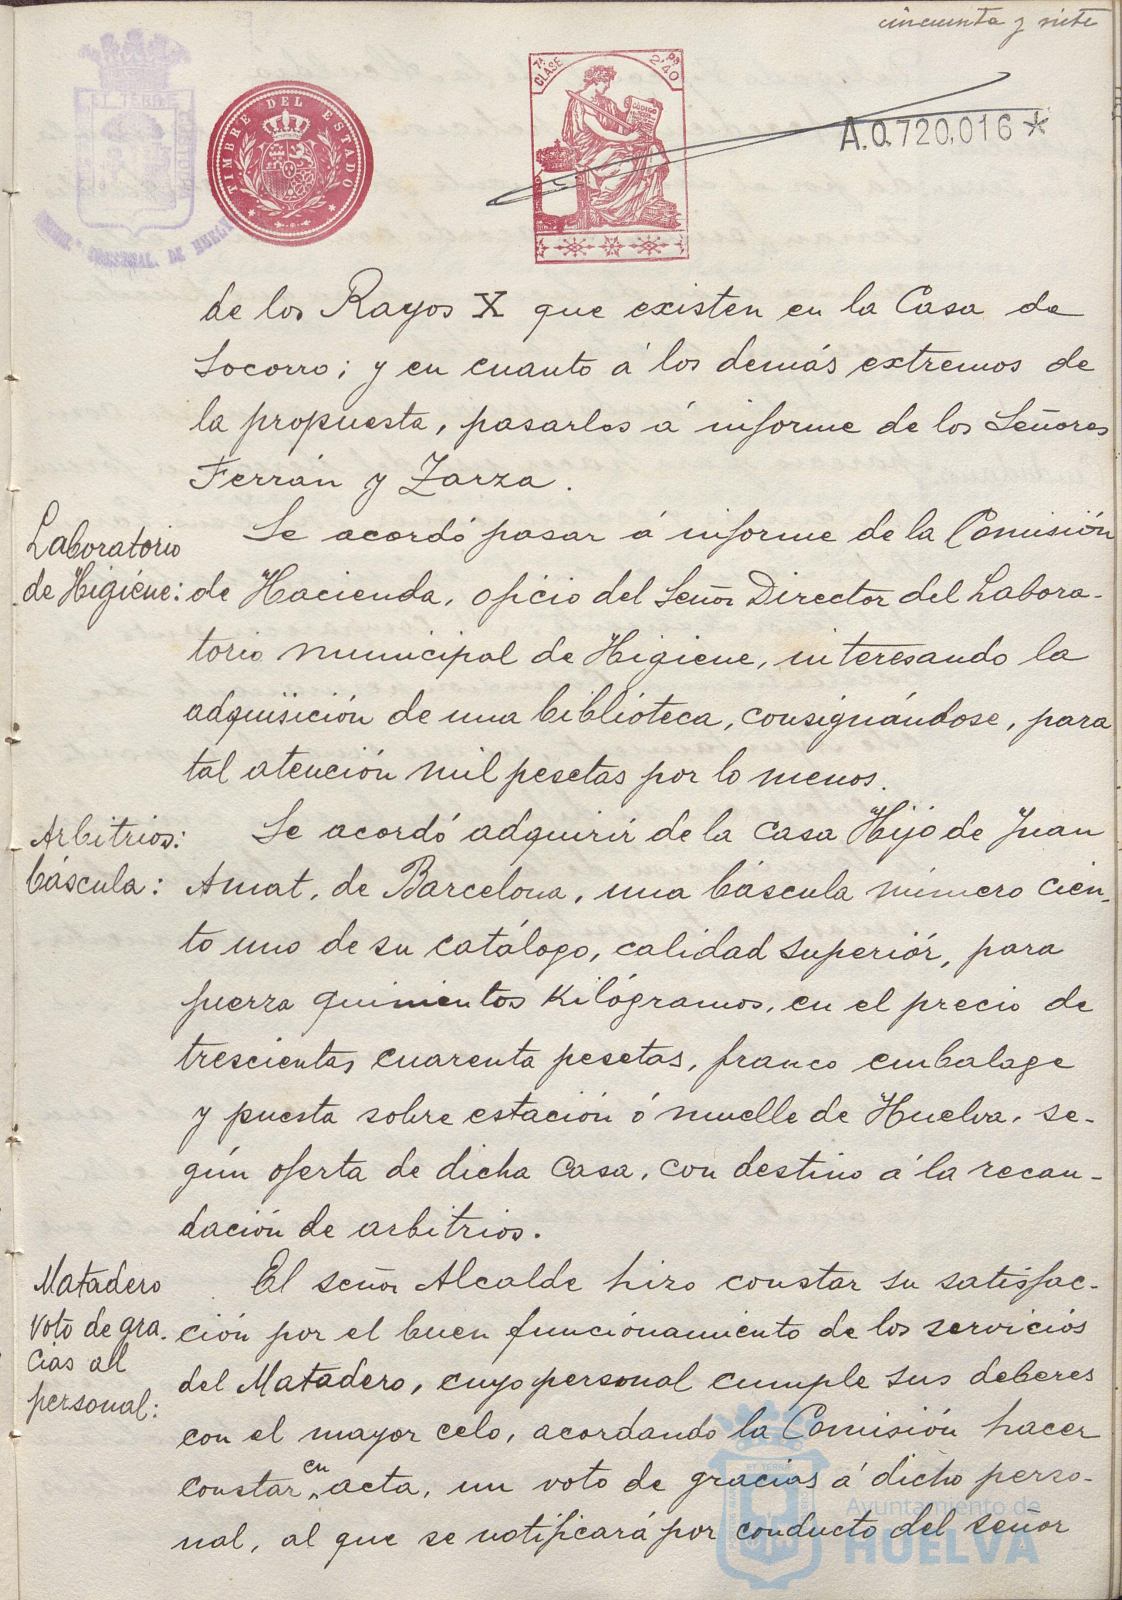 cincuenta y siete
TIMBRE DEL ESTADO
7ª CLASE
2'40
CÓDIGO
A.0,720,016*
de los Rayos X que existen en la Casa de
Socorro; y en cuanto á los demás extremos de
la propuesta, pasarlos á informe de los Señores
Ferrán y Zarza.
Laboratorio
de Higiéne:
Se acordó pasar á informe de la Comisión
de Hacienda, oficio del Señor Director del Labora-
torio municipal de Higiene, interesando la
adquisición de una biblioteca, consignándose, para
tal atención mil pesetas por lo menos.
Arbitrios:
báscula:
Se acordó adquirir de la casa Hijo de Juan
Amat, de Barcelona, una báscula número cien-
to uno de su catálogo, calidad superiór, para
fuerza quinientos kilógramos, en el precio de
trescientas cuarenta pesetas, franco embalage
y puesta sobre estación ó muelle de Huelva, se-
gún oferta de dicha casa, con destino á la recau-
dación de arbitrios.
Matadero
voto de gra-
cias al
personal:
El señor Alcalde hizo constar su satisfac-
ción por el buen funcionamiento de los servicios
del Matadero, cuyo personal cumple sus deberes
con el mayor celo, acordando la Comisión hacer
constar en acta, un voto de gracias á dicho perso-
nal, al que se notificará por conducto del señor
Ayuntamiento de
HUELVA